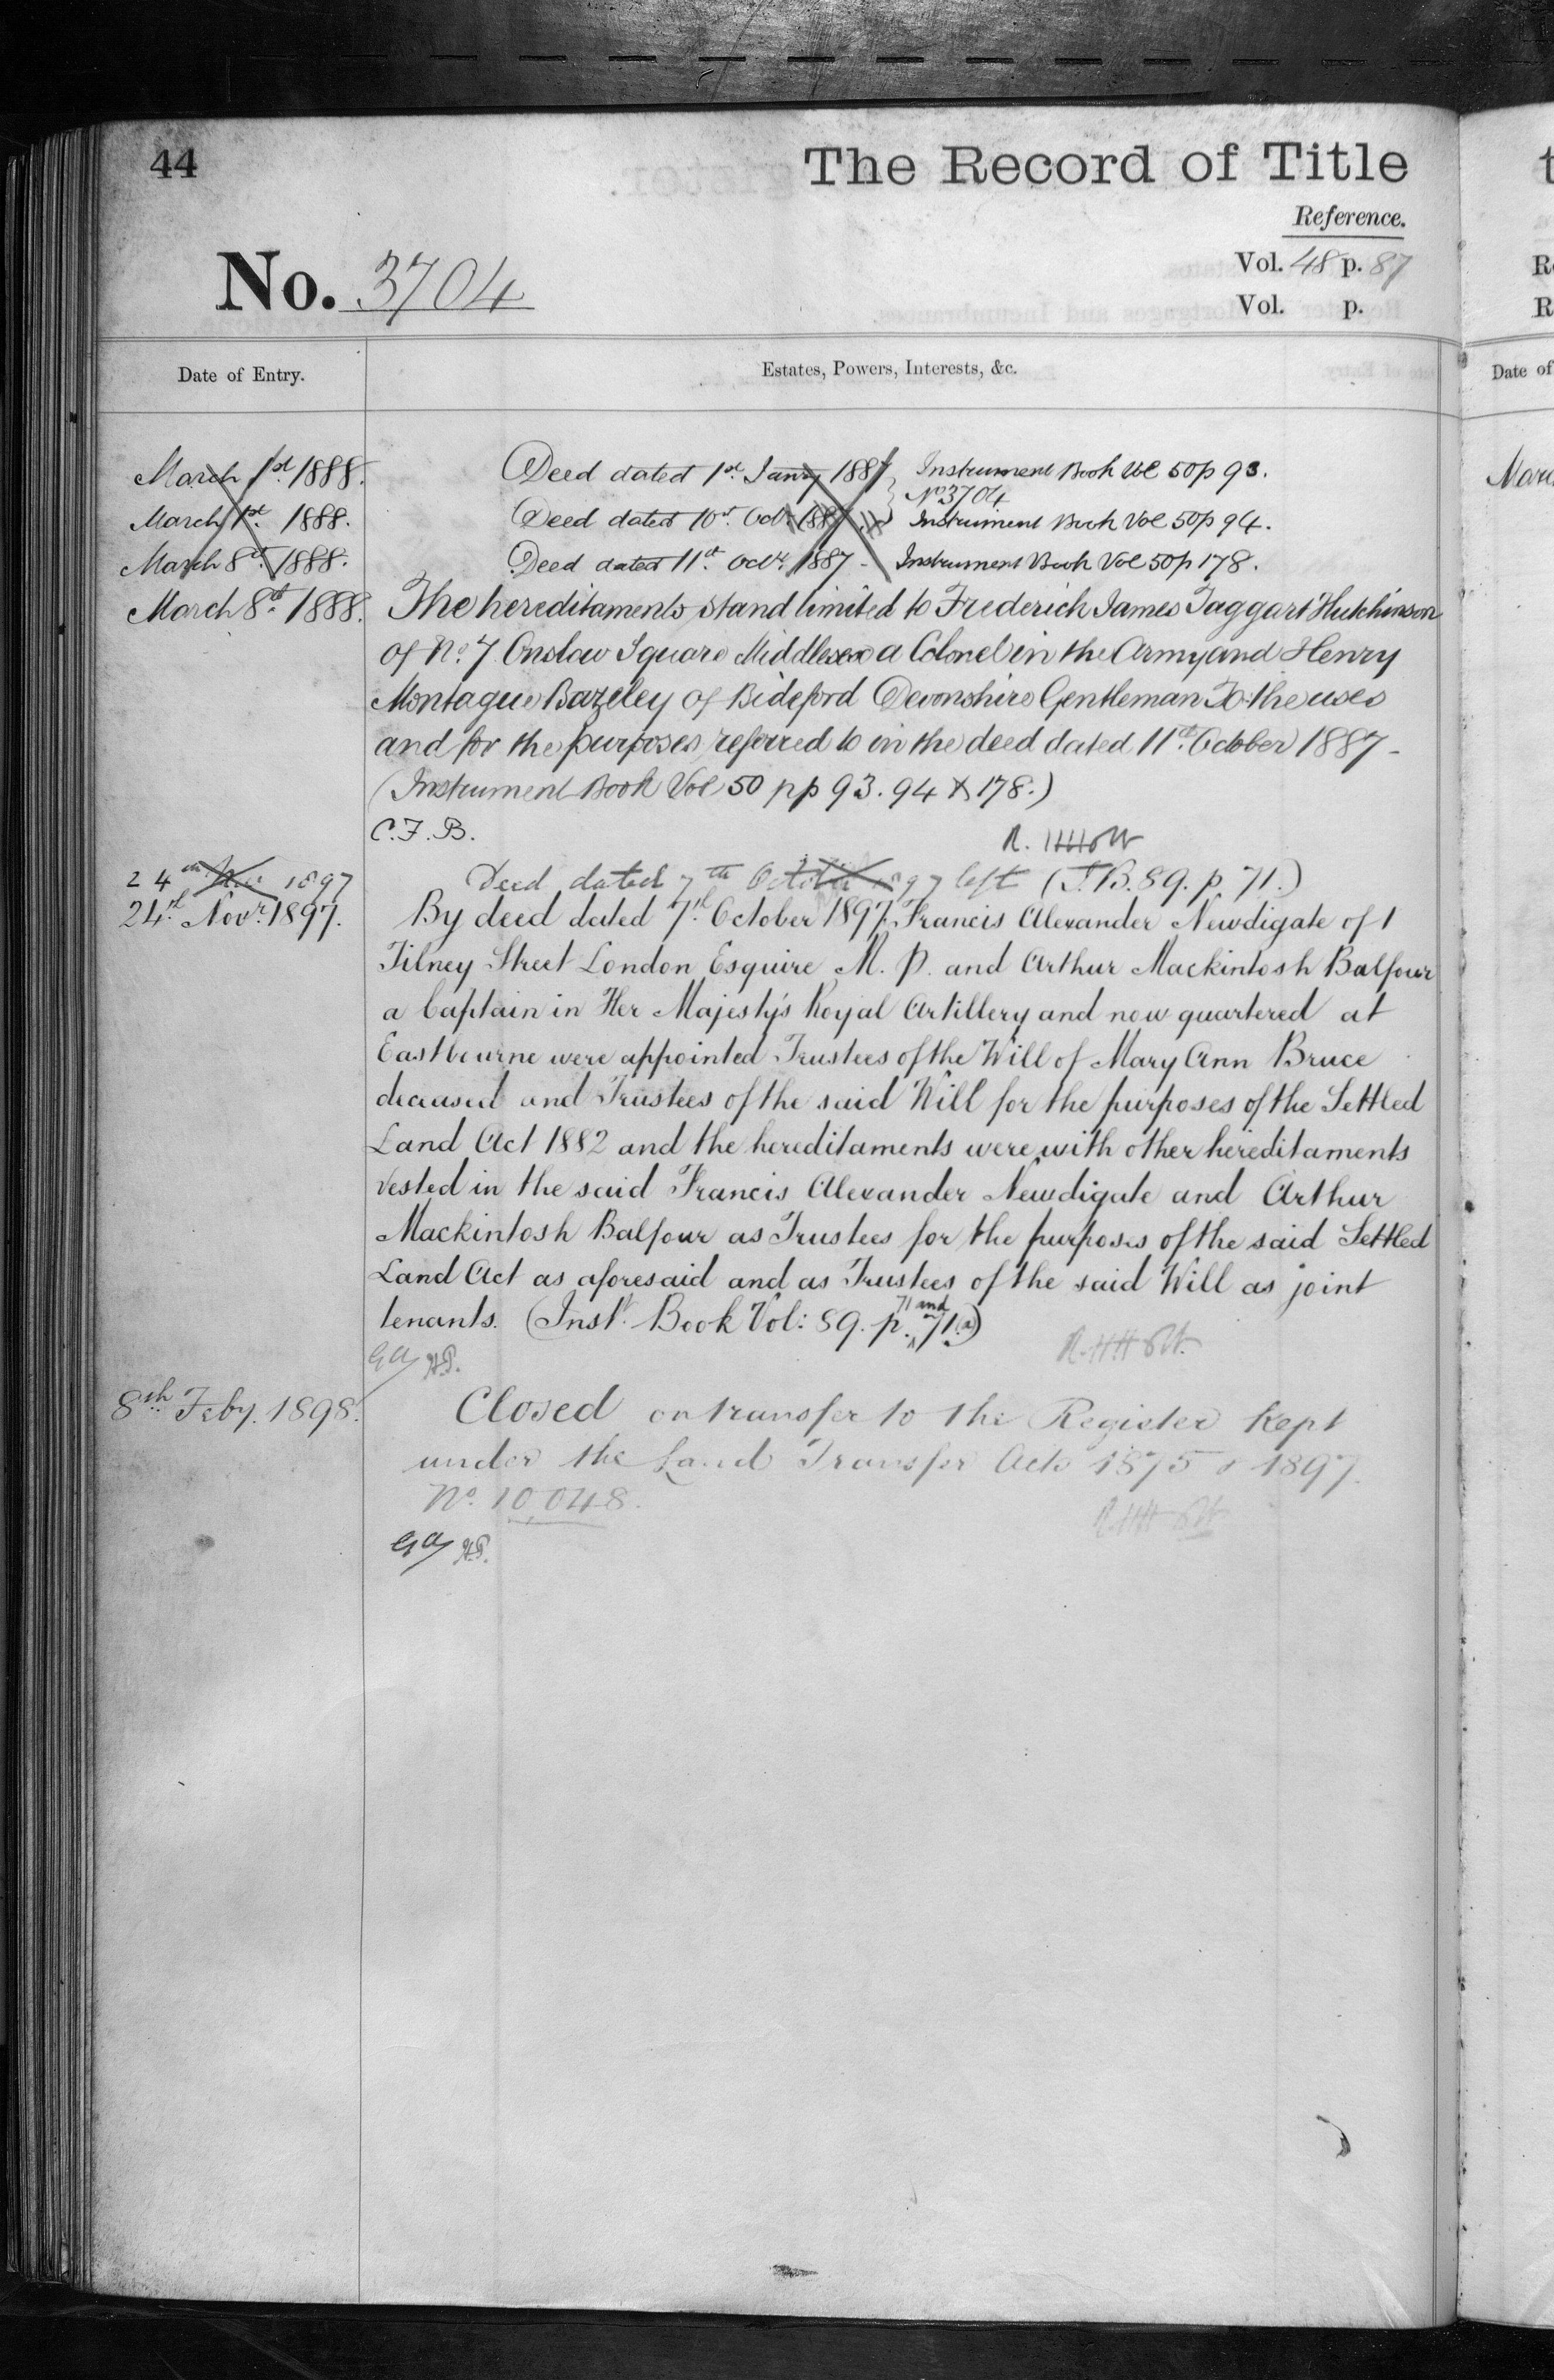 44
The Record of Title
Reference.
Vol. 48 p. 87
No. 3704
Vol. p.
Date of Entry.
Estates, Powers, Interests, &c.
March 1st. 1888. Deed dated 1st. Jany 1887 Instrument Book Vol 50 p 93.
No 3704
March 1st. 1888. Deed dated 10th. Octr. 1887 Instrument Book Vol 50 p 94.
March 8th. 1888. Deed dated 11th. Octr. 1887 - Instrument Book Vol 50 p 178.
March 8th. 1888. The hereditaments stand limited to Frederick James Taggart Hutchinson
of No. 7 Onslow Square Middlesex a Colonel in the Army and Henry
Montague Bazeley of Bideford Devonshire Gentleman To the uses
and for the purposes referred to in the deed dated 11th. October 1887 -
(Instrument Book Vol 50 pp 93. 94 & 178.)
C. F. B.
24th Nov 1897 Deed dated 7th October 1897 left (I.B. 89. p. 71.)
24th. Novr. 1897. By deed dated 7th. October 1897 Francis Alexander Newdigate of 1
Tilney Street London Esquire M. P. and Arthur Mackintosh Balfour
a Captain in Her Majesty's Royal Artillery and now quartered at
Eastbourne were appointed Trustees of the Will of Mary Ann Bruce
deceased and Trustees of the said Will for the purposes of the Settled
Land Act 1882 and the hereditaments were with other hereditaments
vested in the said Francis Alexander Newdigate and Arthur
Mackintosh Balfour as Trustees for the purposes of the said Settled
Land Act as aforesaid and as Trustees of the said Will as joint
tenants. (Instt. Book Vol: 89. p. 71 and 71(a))
8th Feby. 1898. Closed on transfer to the Register kept
under the Land Transfer Acts 1875 & 1897.
No. 10,048.
Date of